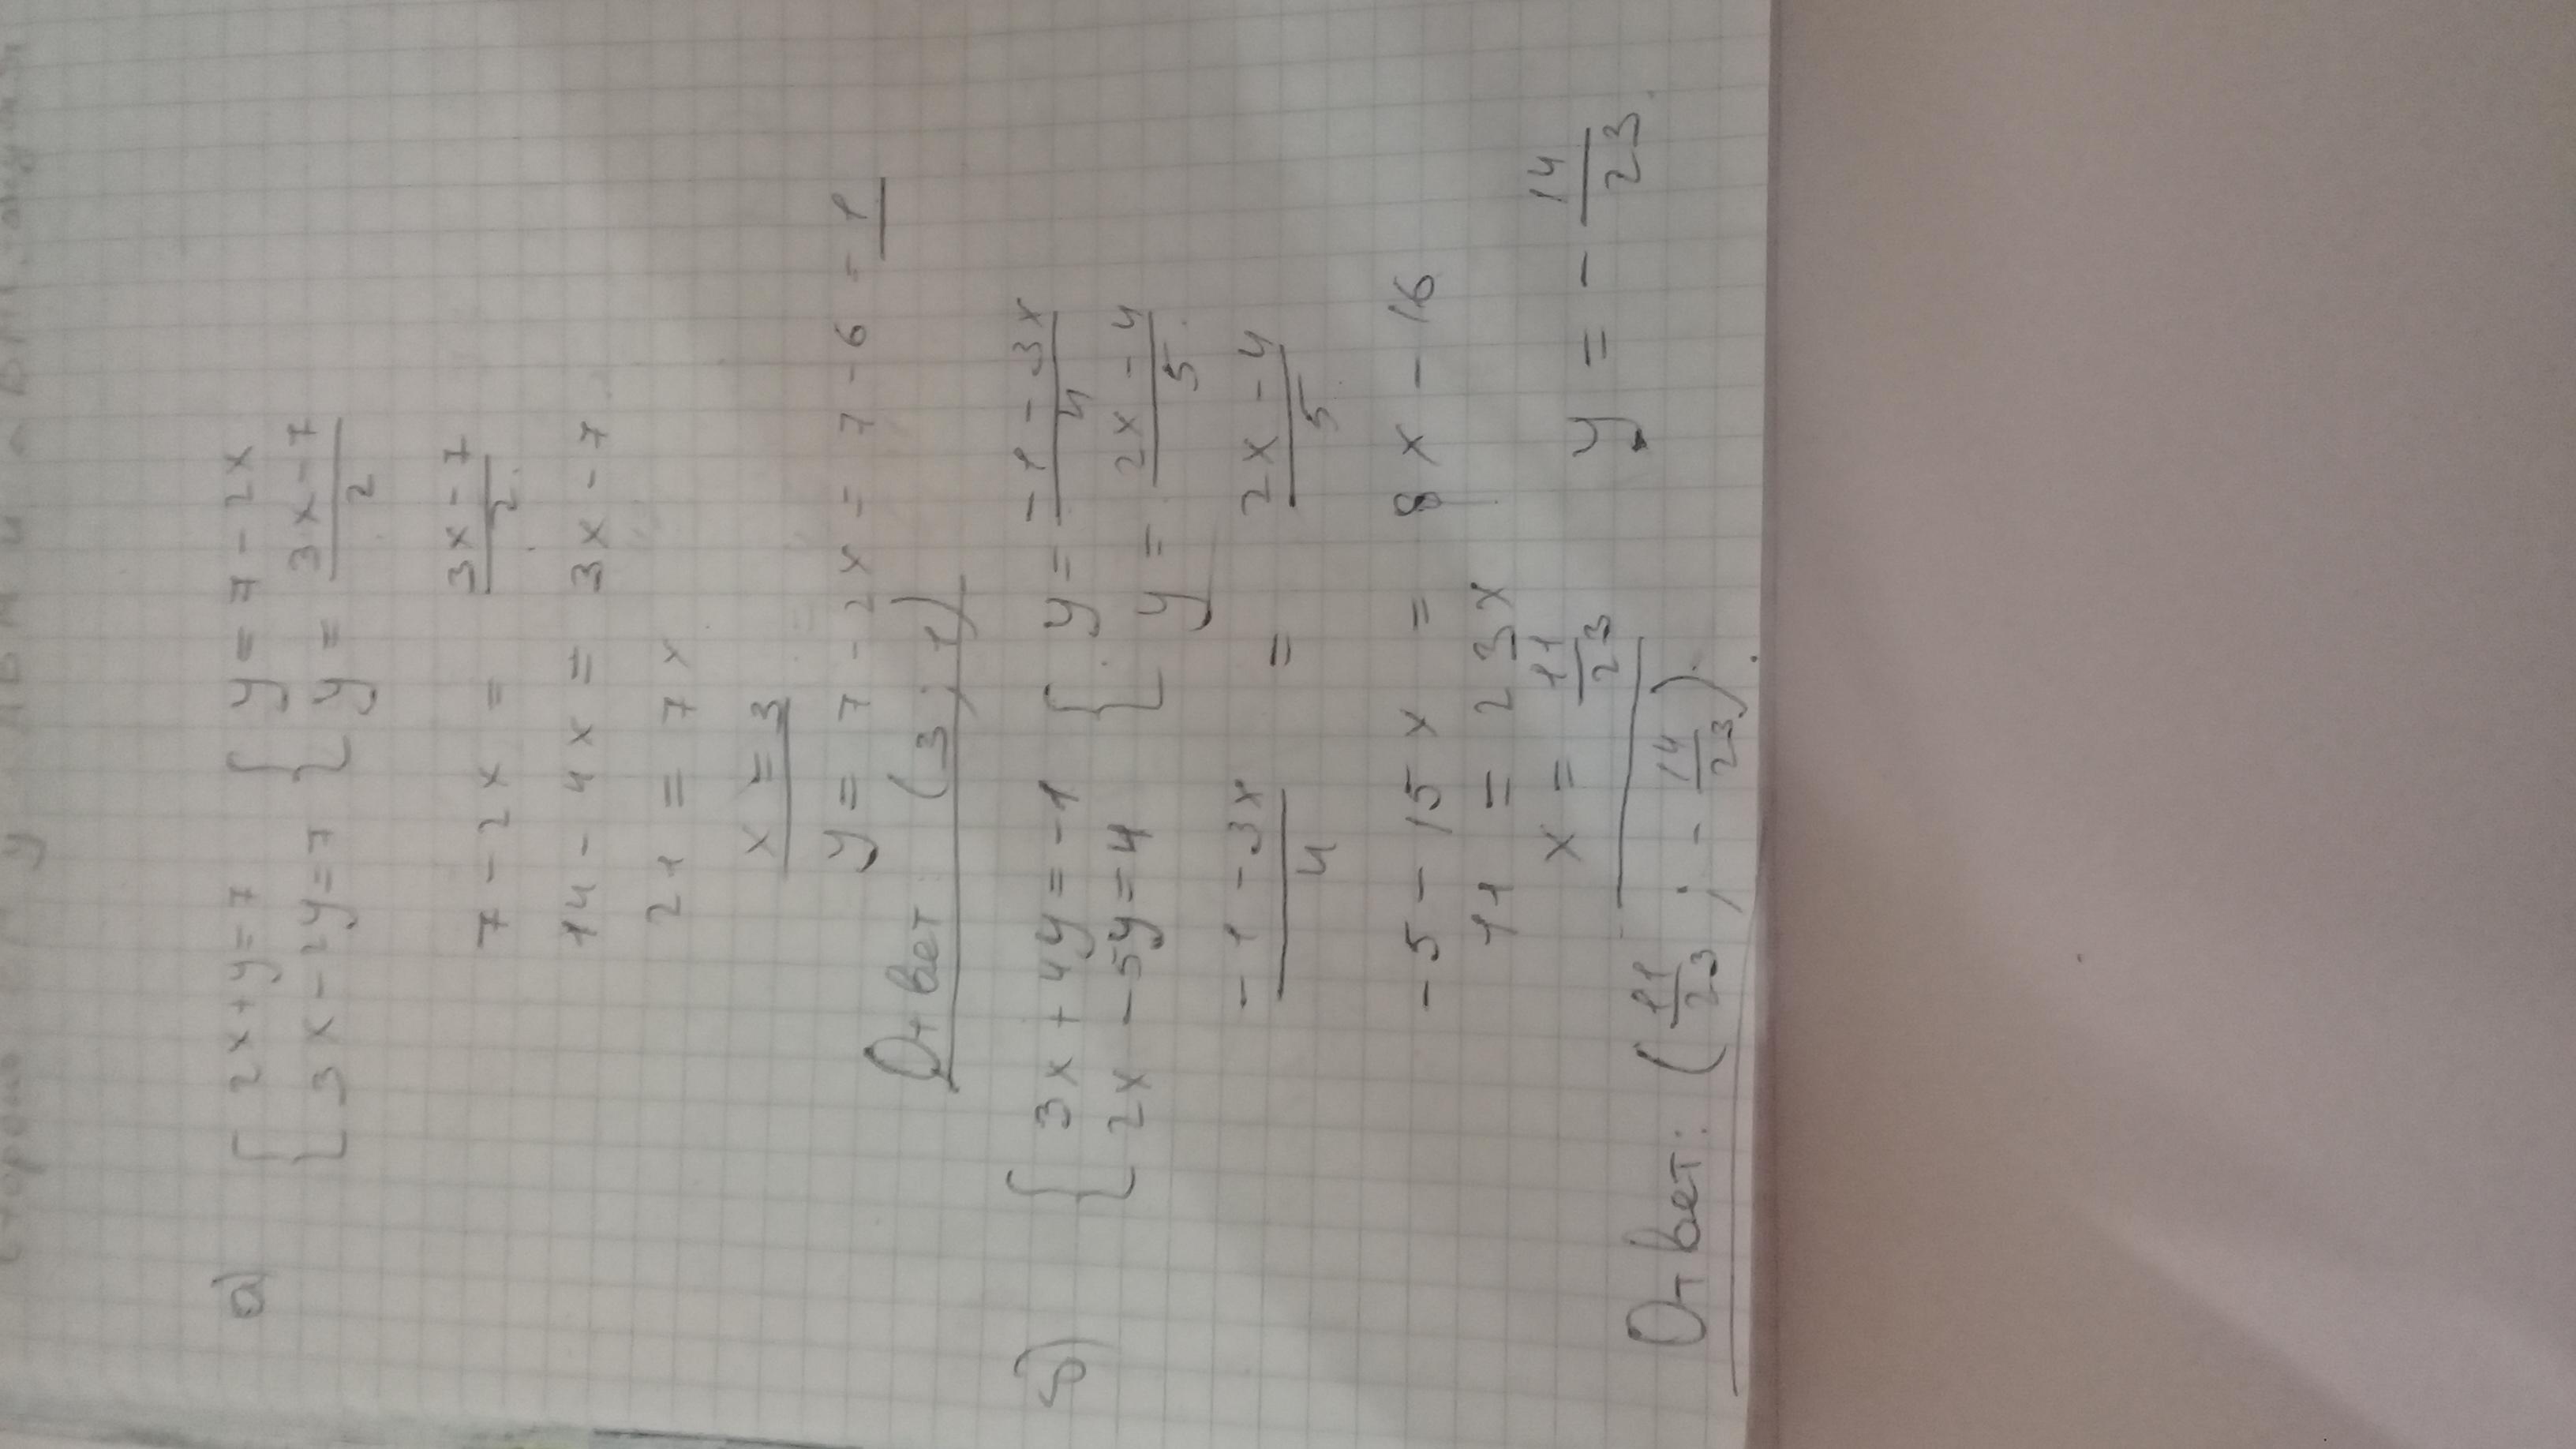 а) { 2x + y = 7 { y = 7 - 2x
{ 3x - 2y = 7 { y = \frac{3x - 7}{2}
7 - 2x = \frac{3x - 7}{2}
14 - 4x = 3x - 7
21 = 7x
x = 3
y = 7 - 2x = 7 - 6 = 1
Ответ (3; 1)
б) { 3x + 4y = -1 { y = \frac{-1 - 3x}{4}
{ 2x - 5y = 4 { y = \frac{2x - 4}{5}
\frac{-1 - 3x}{4} = \frac{2x - 4}{5}
-5 - 15x = 8x - 16
11 = 23x
x = \frac{11}{23} y = -\frac{14}{23}
Ответ: (\frac{11}{23}; -\frac{14}{23}).